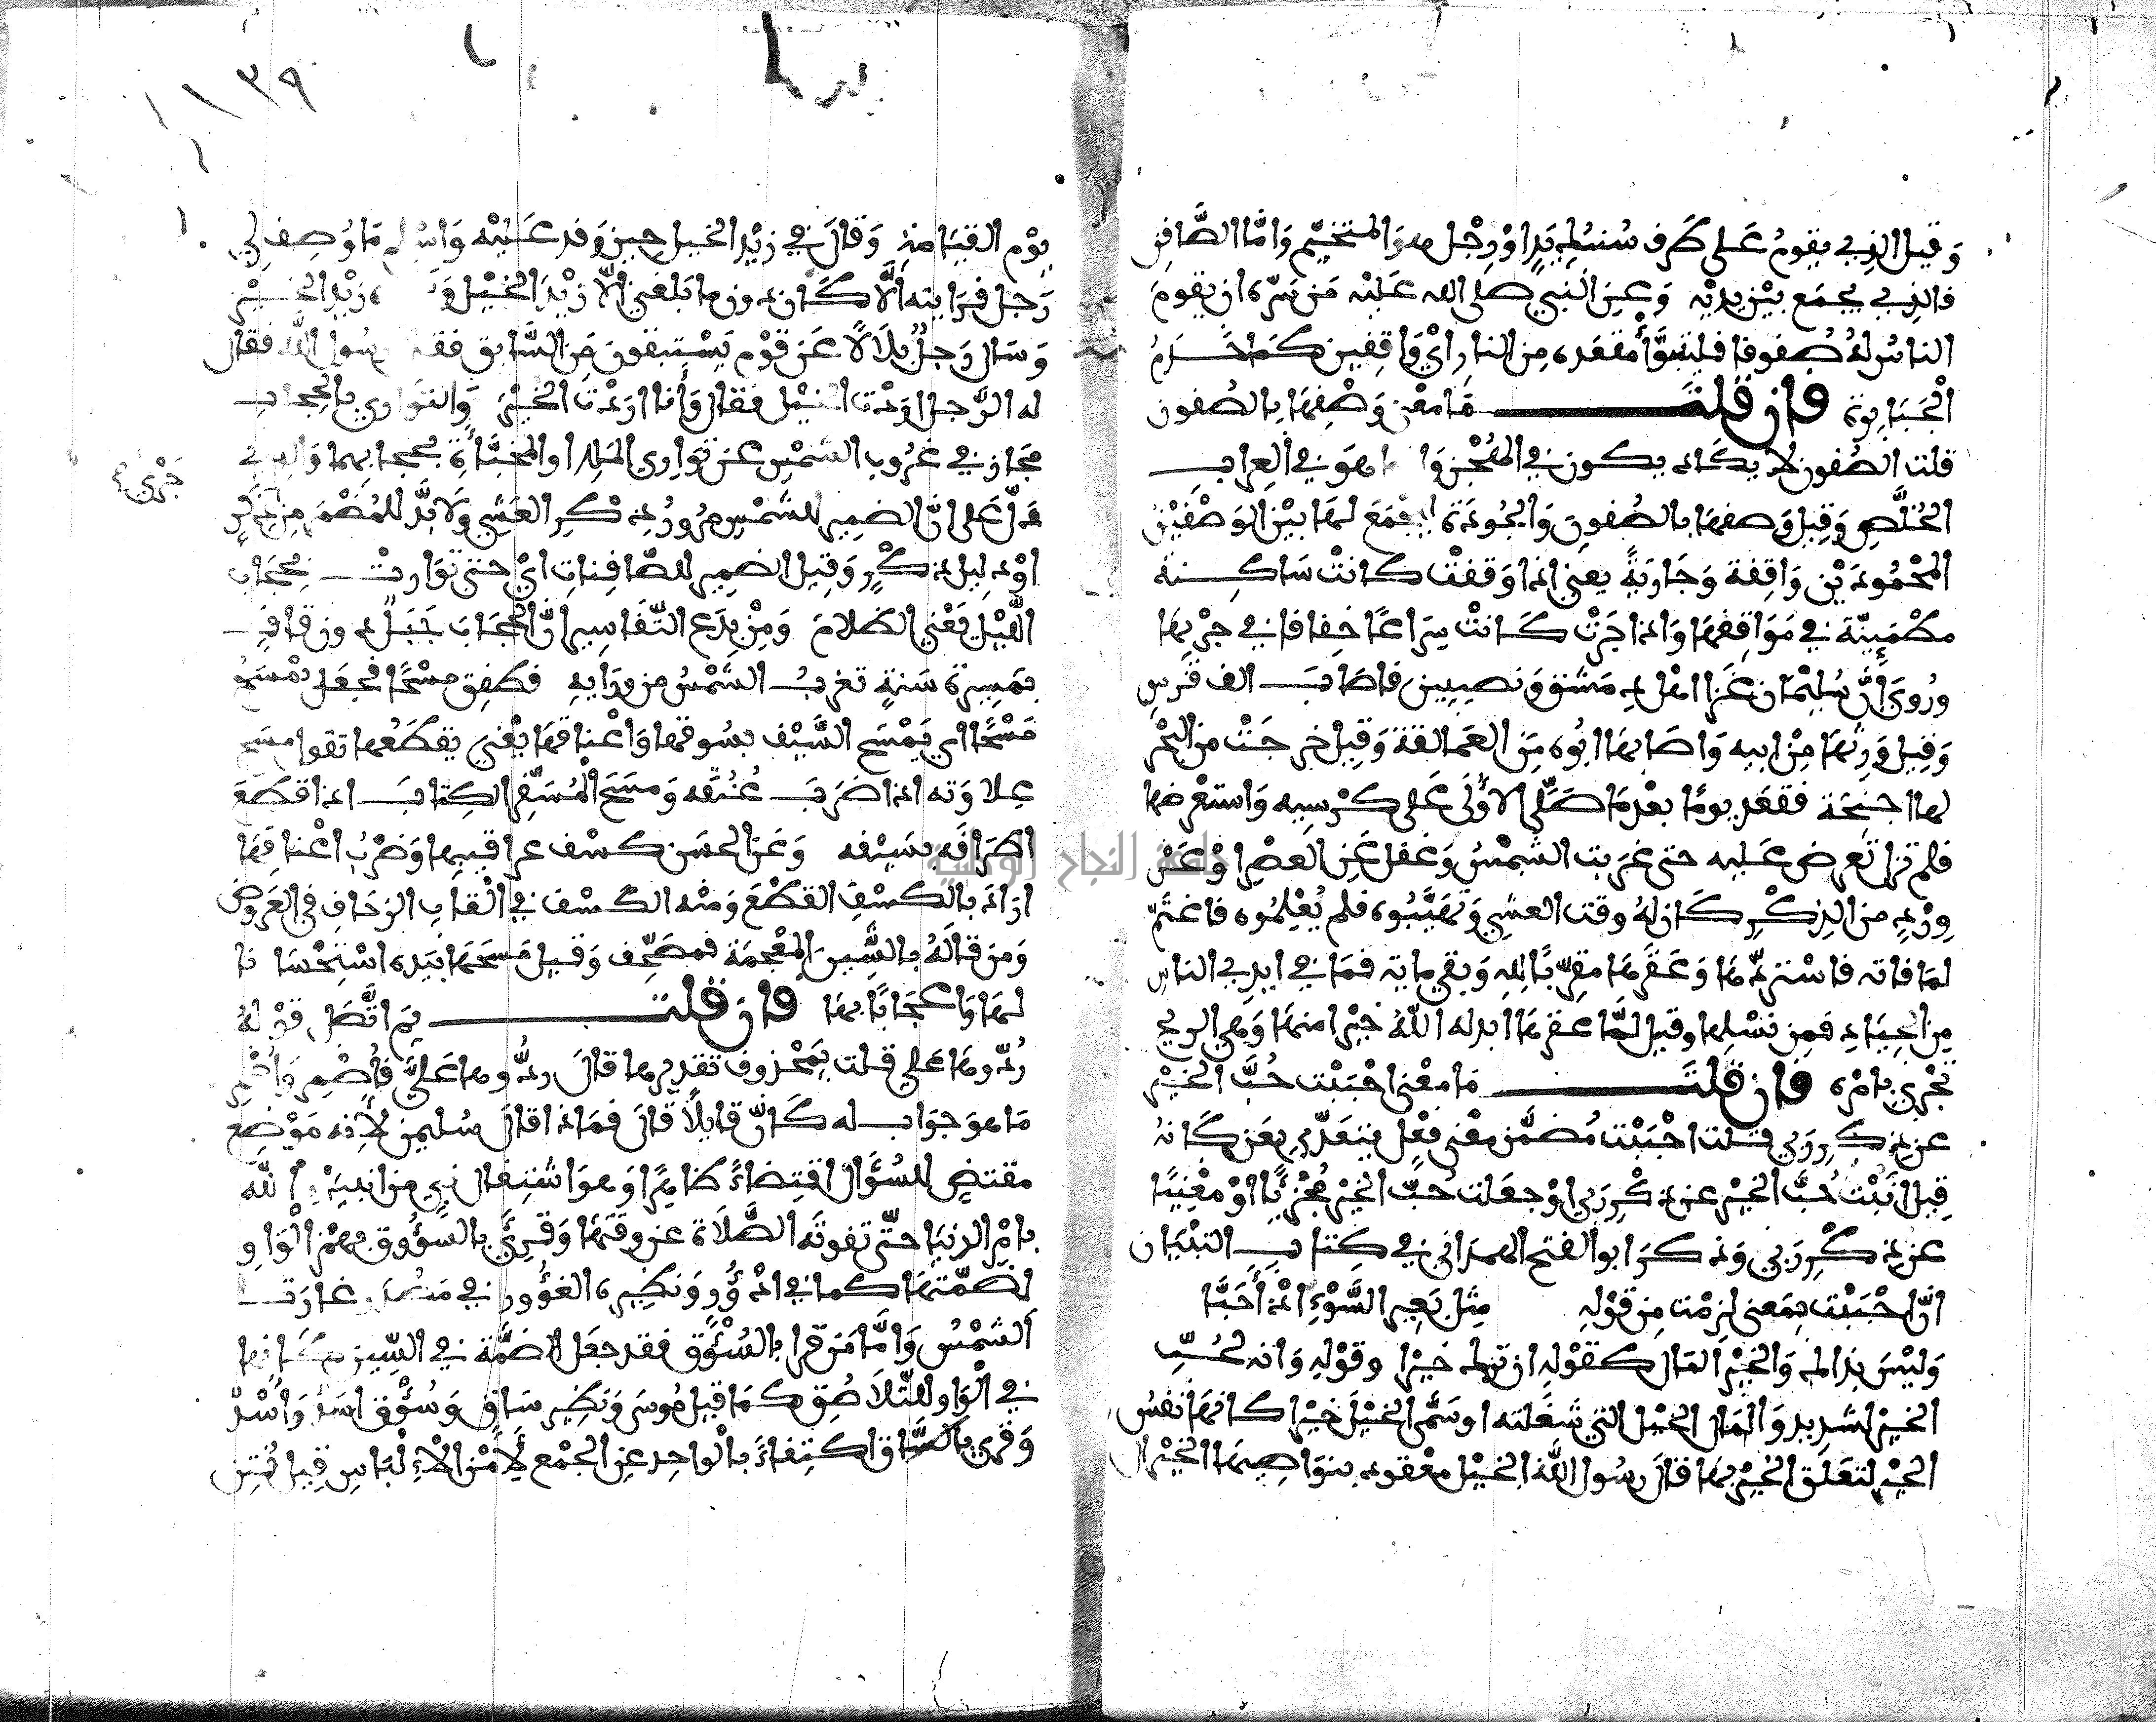 وَقيل الذي يقومُ عَلى طَرف سُنبُلِه يَدٍ اوْ رِجْل هوَ المتخيّم وَامّا الصَّافن
فالذي يجمَع بيْن يديْه وَعنِ النبي صلى الله عَليْه مَن سَرّه ان يقومَ
الناسُ لهُ صُفوفا فليتبَوَّأ مقعَده مِن النار ايْ وَاقِفين كما خَدَمُ
الْجَبَابِرَة فان قلتَ مَا معْنى وَصْفهَا بِالصُفون
قلت الصُفون لا يكاد يكون في الهُجْن وَانما هوَ في العِراب
الخُلَّصِ وَقِيل وَصفهَا بالصُفونِ وَالجُودَة ليجْمَعَ لهَا بيْن الوَصْفيْن
المحْمُودَيْن وَاقِفة وَجَاريَةً يعني اذا وَقفتْ كانتْ سَاكِنة
مطْمَئِنّة في مَوَاقِفهَا وَاذا جَرَتْ كانتْ سِرَاعًا خِفافا في جَرْيهَا
ورُويَ أَنَّ سُليْمَان غَزا اهْل دمَشق وَنصيبين فاصَابَ الف فَرسٍ
وَقِيل وَرِثهَا مِنْ ابيه وَاصَابهَا ابُوه مِنَ العَمالقة وَقِيل خرجتْ من البحْر
لها اجنحَة فقعَد يومًا بعْد مَا صَلّى الاُولَى عَلى كرْسِيه وَاستعرضَها
فلم تزل تعرض عَليه حتى غرَبت الشمْسُ وَغفل عَنِ العصْرِ اوْ عَنْ
وِرْدٍ من الذِكْرِ كان لهُ وقت العشيِ وَتهَيَّبُوه فلم يُعْلِمُوه فاغتَمَّ
لمَا فاته فاسْتردّهَا وَعَقَرهَا مقرِّبًا لله وَبقي مائة فمَا في ايدِي الناس
مِن الجِيَادِ فمِن نسْلِها وقيل لمَّا عقرهَا ابدله اللهُ خيْرا منهَا وَهي الريح
تجْري بامْره فان قلتَ مَا معْنى احْبَبْت حُبَّ الخيْر
عن ذكرِ رَبي قلت احْبَبْت مُضمَّن معْنى فِعْل يتعَدّى بعَن كانهُ
قِيل انَبْتُ حُبَّ الخيْر عن ذكْر رَبي اوْ جعَلت حُبَّ الخيْر مُجْزيًا اوْ مغْنِيًا
عن ذكْرِ رَبي وَذكرَ ابو الفتح الهمداني في كِتابِ التبْيَان
انّ احْبَبْت بمَعنى لزِمْت مِن قوْلهِ مِثل بَعِير السَّوْءِ اذْ أَحَبَّا
وَليْسَ بذالك وَالخيْر المَال كقوْله ان ترك خيْرا وقوْله وَانه لحُبِّ
الخيْر لشديد وَالمَال الخيْل التي شَغَلته اوسَمَّى الخيْل خيْرا كانهَا نفسُ
الخيْر لتعَلق الخيْر بهَا قالَ رسُول الله الخيْل معْقود بنوَاصِيهَا الخيْر الى
يوْم القيَامة وَقالَ في زيْد الخيل حِين وَفد عَليْه وَاسْلم مَا وُصِف لي
رَجل فرَايته الَّا كان دون ما بَلغني الّا زيْدَ الخيْل وَ زيْد الخيْر
وَسَال رَجلٌ بلَالًا عَن قوْم يَسْتبقون مَن السَّابق فقال رسُول الله فقال
له الرَّجل اردْت الخيْل فقال وَأنا اردْت الخيْر وَالتوَاري بالحِجاب
مجَاز في غرُوب الشمْسِ عن توَارِي الملِك او المخبَّأَةِ بحجابهما وَالذي
دَلّ عَلى انَّ الضمِير للشَّمْسِ مرُورُ ذكْرِ العَشي وَلَا بدَّ للمُضْمَر مِن ذكْرٍ
جَرْي
اوْ دليل ذكْرٍ وَقِيل الضمِير للصَّافِناتِ ايْ حتى توَارتْ بحجَاب
اللَّيْل يَعْني الظلامَ وَمِنْ بِدَع التّفَاسِير انَّ الحجَابَ جَبَل دون قاف
بمَسِيرة سَنةٍ تغربُ الشَّمْسُ من ورَايه فطفِق مسْحًا فجعَل يمْسَحُ
مَسْحًا اي يَمْسَح السَّيْف بسُوقهَا وَاعْناقهَا يعْني يقطَعُها تقول مسَح
عِلاوَته اذا ضَرَبَ عُنُقَه وَمسَحَ الْمُسَفِّر الكِتابَ اذا قطَعَ
اطْرَافَه بسَيْفه وَعَن الحسَن كسْف عراقيبهَا وَضرْبُ اعْناقهَا
ارَادَ بالكسْفِ القطْعَ وَمنْه الكَسْف في القابِ الزحَافِ في العَروض
وَمَن قالَهُ بالشِّين المعْجمَة فمصَحِّف وَقيل مَسَحَهَا بَيَده اسْتِحْسَانا
لهَا وَاعجَابًا بهَا فان قلت بِمَ اتَّصَل قوْلهُ
رُدّوهَا عَلي قلت بمَحْذوف تقديرها قالَ ردُّوهَا عَليَّ فأُضْمِر وَأُضْمِر
مَا هوَ جوَاب له كَانّ قايلًا قالَ فمَاذا قالَ سُليمن لأنه مَوْضِع
مقتضٍ للسُؤال اقتِضاءً ظاهِرًا وَهوَ اشْتِغال نبي مِن انبيَاءِ الله
بامْرِ الدنيَا حتّى تفوتَه الصَّلَاة عن وقتهَا وَقرِئَ بالسُّؤُوق بهمْز الْوَاوِ
لضمّتهَا كما في ادْؤُرٍ وَنظِيره الغؤُور في مَصْدَر غارَت
اَلشمْسُ وَامَّا مَن قرا بالسُؤْق فقد جعَل الضمَّة في السِّين كَانها
في الْوَاو للتَّلاَصُق كمَا قيل مُؤسَى وَنظِير سَاق وَسُؤْق اسَدٌ وَأُسْدٌ
وَقري بالسَّاق اكتِفاءً بالْواحِد عن الجمْع لأَمْن الْاِلْبَاسِ قِيل فُتِن